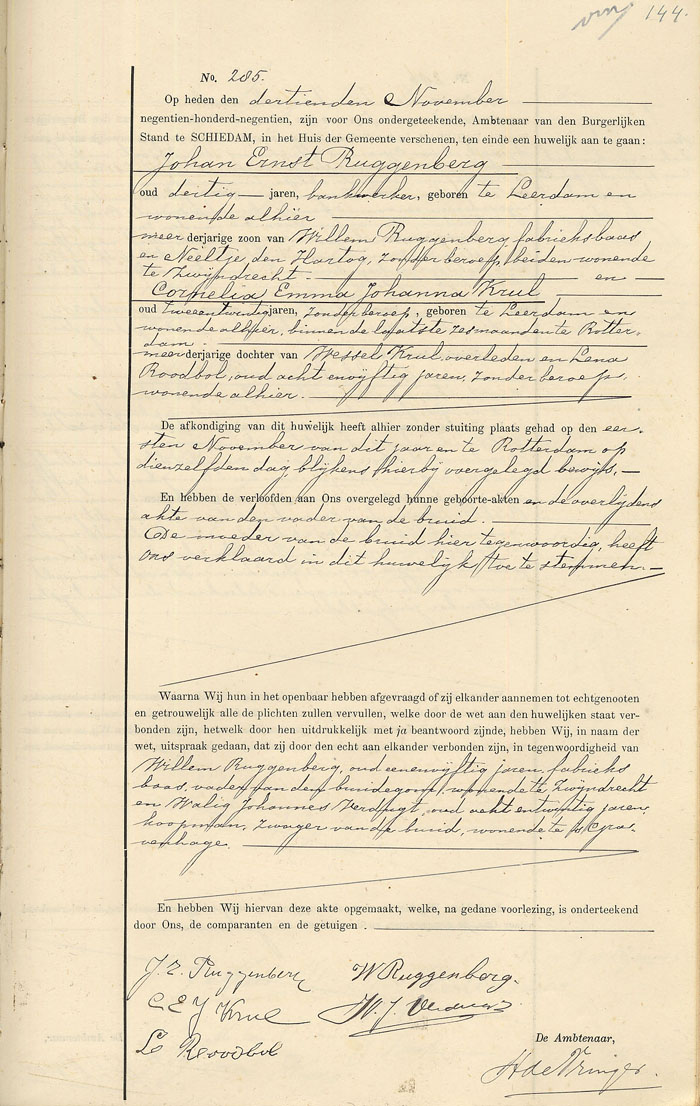 144.
No. 285.
Op heden den dertienden November
negentien-honderd-negentien, zijn voor Ons ondergeteekende, Ambtenaar van den Burgerlijken
Stand te SCHIEDAM, in het Huis der Gemeente verschenen, ten einde een huwelijk aan te gaan:
Johan Ernst Ruggenberg
oud dertig jaren, bankwerker, geboren te Leerdam en
wonende alhier
meerderjarige zoon van Willem Ruggenberg, fabrieksbaas
en Neeltje den Hartog, zonder beroep, beiden wonende
te Zwijndrecht. en
Cornelia Emma Johanna Krul
oud tweeentwintig jaren, zonder beroep, geboren te Leerdam en
wonende alhier, binnen de laatste zes maanden te Rotter-
dam.
meerderjarige dochter van Wessel Krul, overleden en Lena
Roodbol, oud acht en vijftig jaren, zonder beroep,
wonende alhier.
De afkondiging van dit huwelijk heeft alhier zonder stuiting plaats gehad op den eer-
sten November van dit jaar en te Rotterdam op
dienzelfden dag, blijkens hierbij overgelegd bewijs.
En hebben de verloofden aan Ons overgelegd hunne geboorte-akten en de overlijdens
akte van den vader van de bruid.
De moeder van de bruid hier tegenwoordig, heeft
Ons verklaard in dit huwelijk toe te stemmen.
Waarna Wij hun in het openbaar hebben afgevraagd of zij elkander aannemen tot echtgenooten
en getrouwelijk alle de plichten zullen vervullen, welke door de wet aan den huwelijken staat ver-
bonden zijn, hetwelk door hen uitdrukkelijk met ja beantwoord zijnde, hebben Wij, in naam der
wet, uitspraak gedaan, dat zij door den echt aan elkander verbonden zijn, in tegenwoordigheid van
Willem Ruggenberg, oud eenenvijftig jaren, fabrieks
baas, vader van den bruidegom, wonende te Zwijndrecht
en Walig Johannes Verdugt, oud acht en twintig jaren,
koopman, zwager van de bruid, wonende te 's Gra-
venhage.
En hebben Wij hiervan deze akte opgemaakt, welke, na gedane voorlezing, is onderteekend
door Ons, de comparanten en de getuigen.
J. E. Ruggenberg W Ruggenberg.
C E J Krul W. J. Verdugt
L Roodbol
De Ambtenaar,